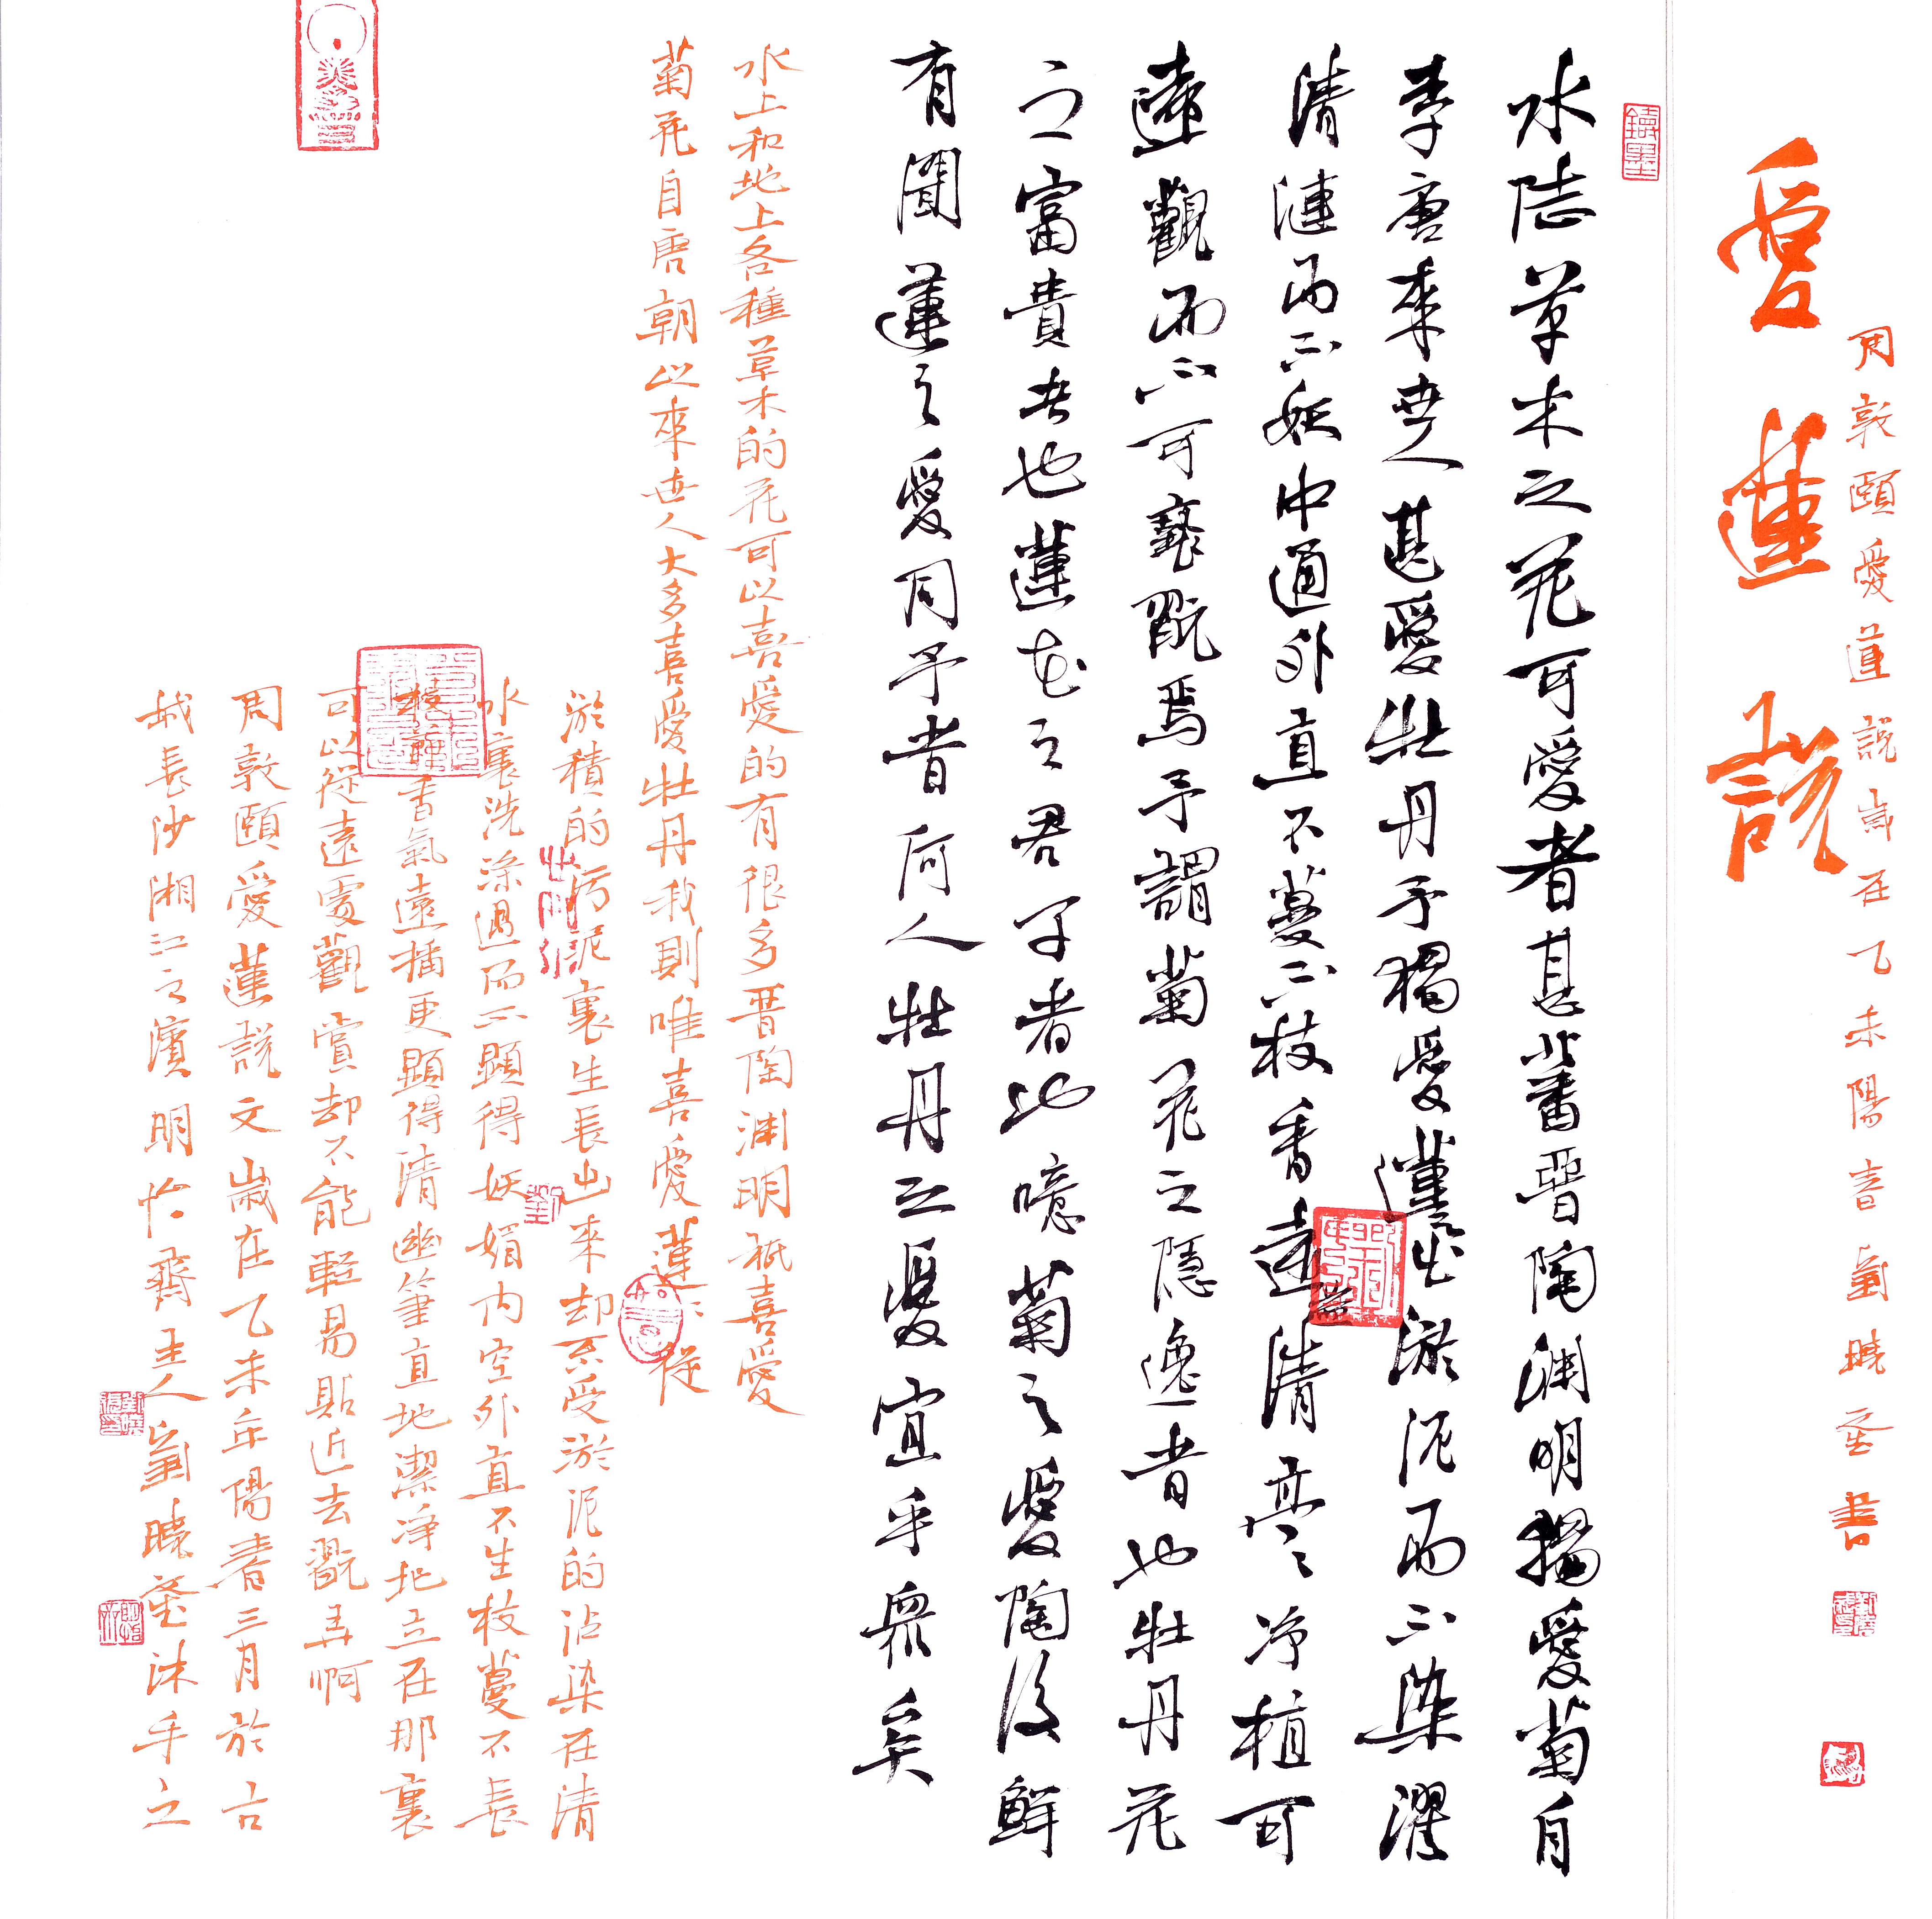 愛蓮說
周敦頤愛蓮說歲在乙未陽春劉曉堊書
水陸草木之花可愛者甚蕃晉陶渊明獨愛菊自
李唐來世人甚愛牡丹予獨愛蓮之出淤泥而不染濯
清漣而不妖中通外直不蔓不枝香遠益清亭亭净植可
遠觀而不可褻翫焉予謂菊花之隱逸者也牡丹花
之富貴者也蓮花之君子者也噫菊之愛陶後鮮
有聞蓮之愛同予者何人牡丹之愛宜乎眾矣
水上和地上各種草木的花可以喜愛的有很多晋陶渊明祇喜愛
菊花自唐朝以來世人大多喜愛牡丹我則唯喜愛蓮從
淤積的污泥裏生長出來却不受淤泥的沾染在清
水裏洗滌過而不顯得妖媚内空外直不生枝蔓不長
枝 香氣遠播更顯得清幽筆直地潔净地立在那裏
可以從遠處觀賞却不能輕易貼近去翫弄啊
周敦頤愛蓮説文歲在乙未年陽春三月於古
城長沙湘江之濱明 齋主人劉曉堊沐手之